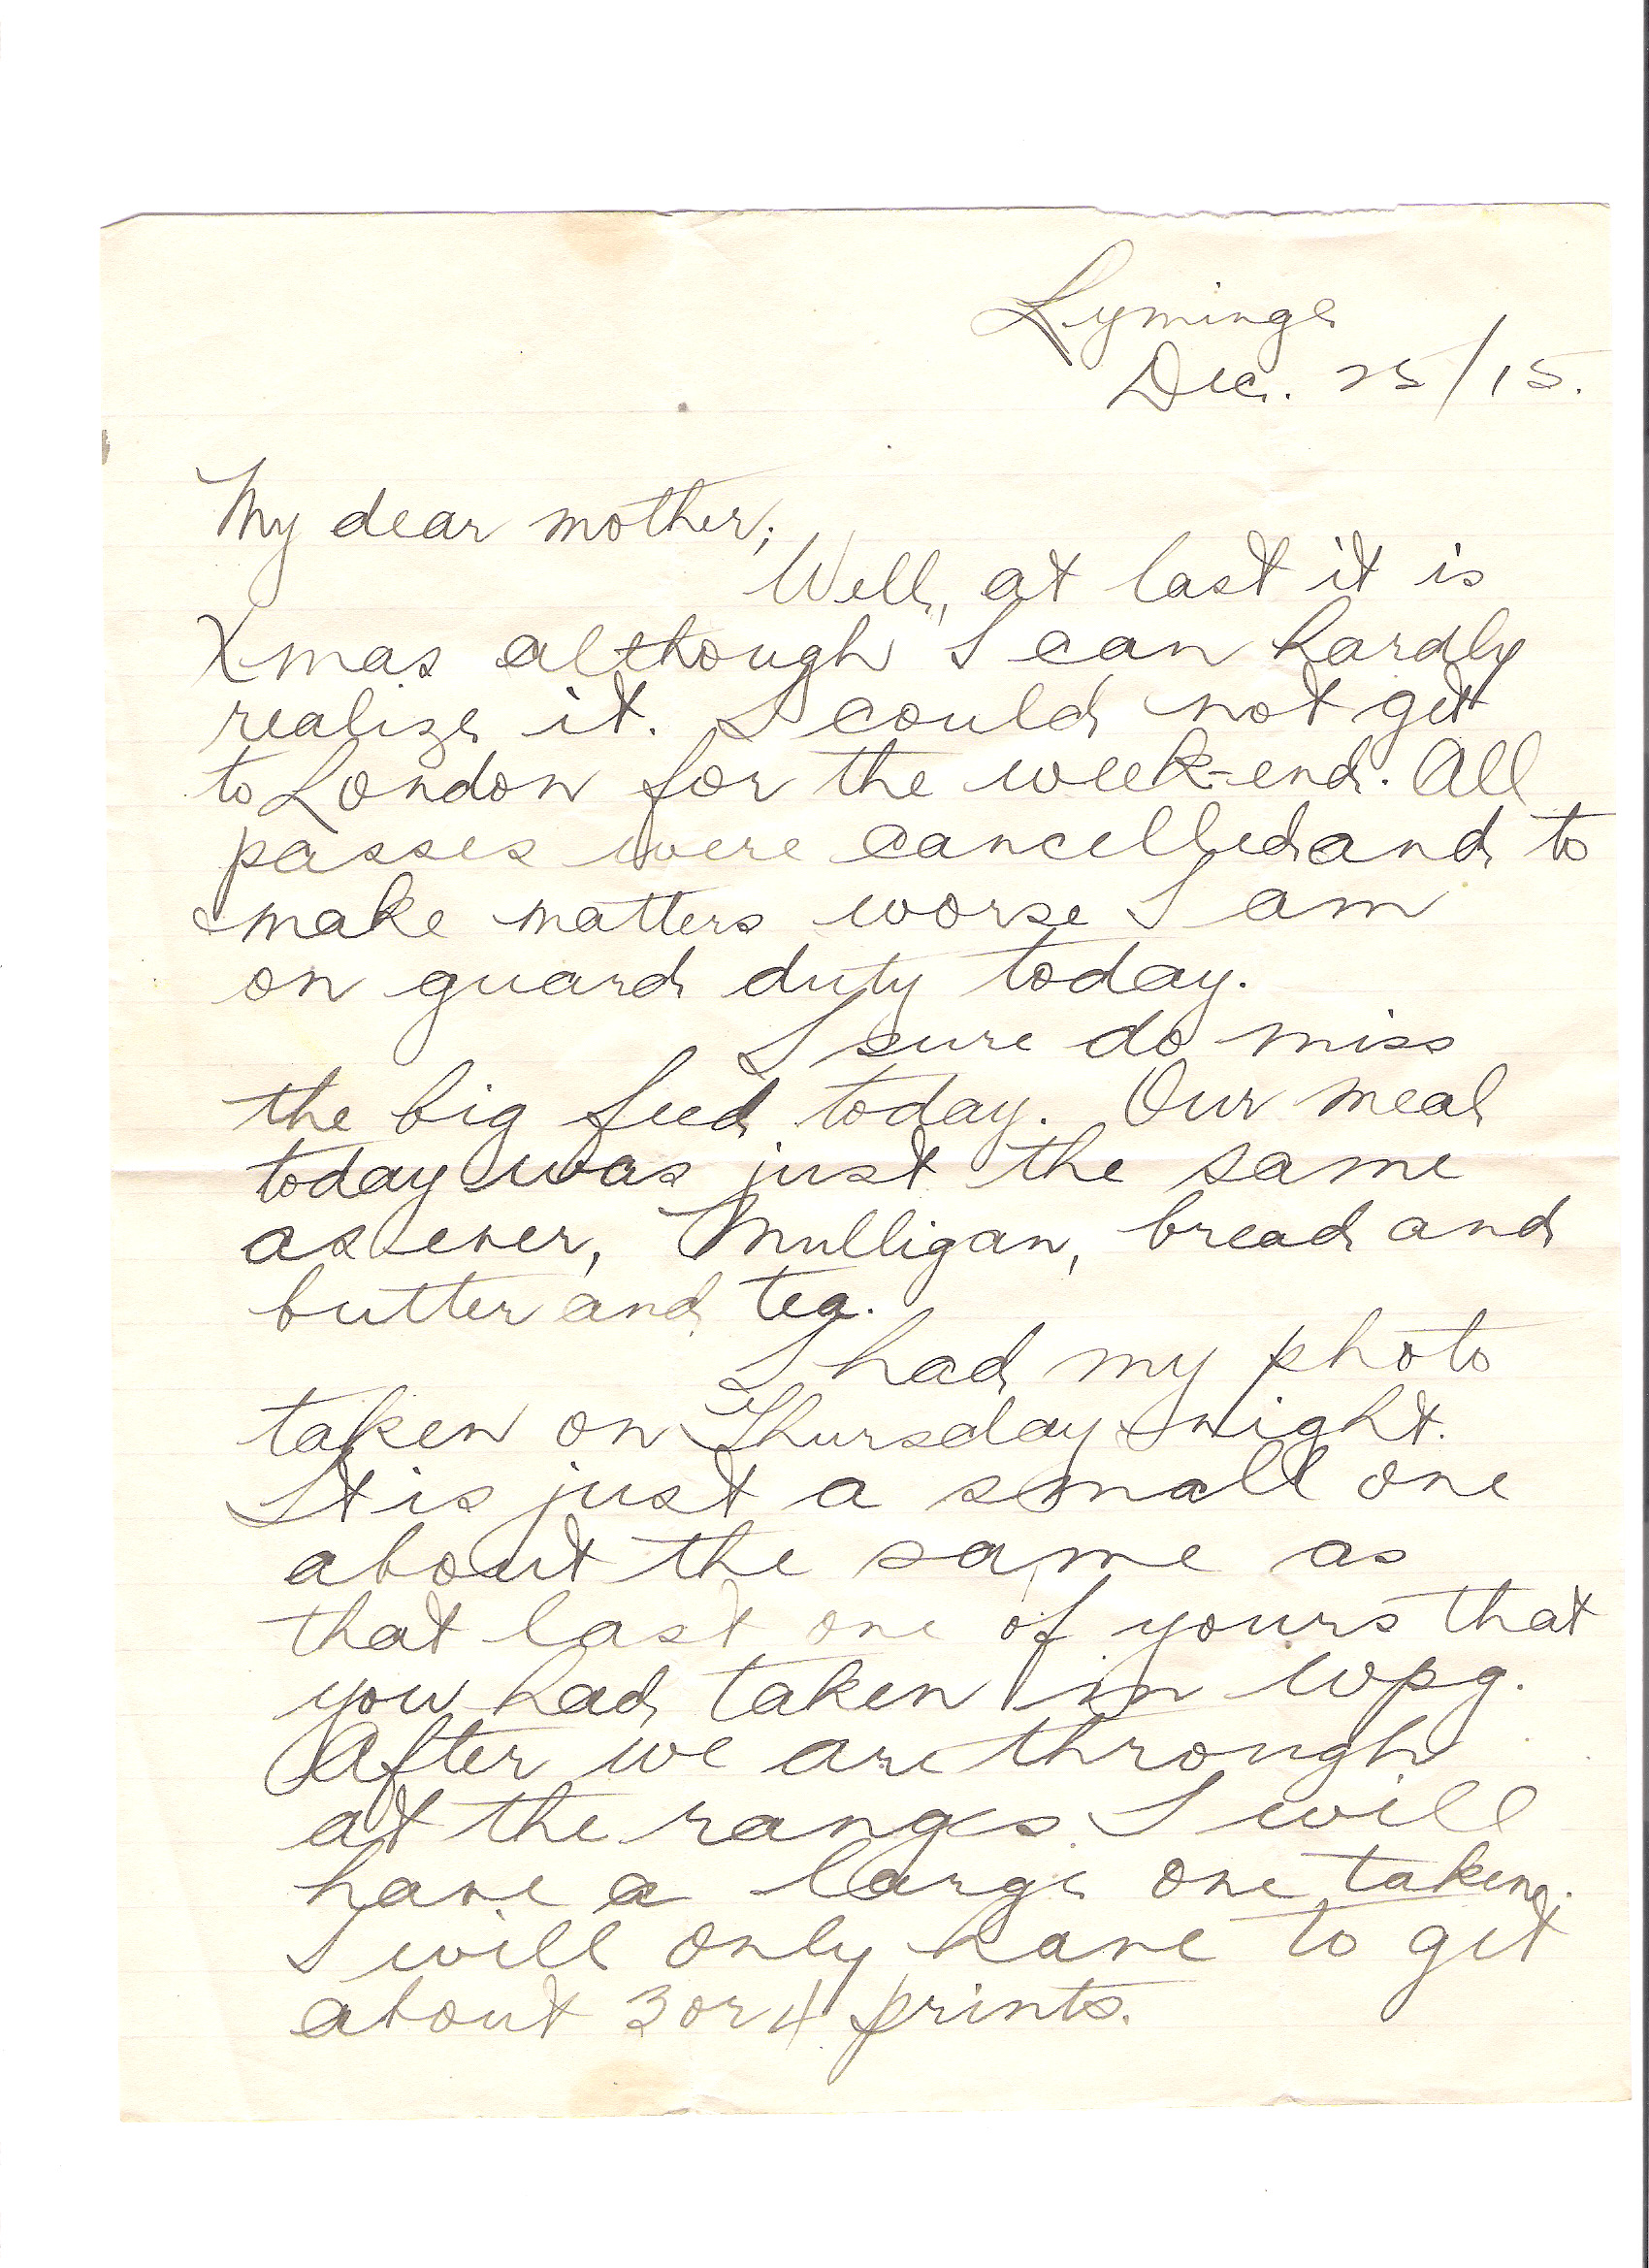 Lyminge
Dec. 25/15.
My dear mother;
Well, at last it is
Xmas although I can hardly
realize it. I could not get
to London for the week-end. All
passes were cancelled and to
make matters worse I am
on guard duty today.
I sure do miss
the big feed today. Our meal
today was just the same
as ever, Mulligan, bread and
butter and tea.
I had my photo
taken on Thursday night.
It is just a small one
about the same as
that last one of yours that
you had taken in Wpg.
After we are through
at the ranges I will
have a large one taken.
I will only have to get
about 3 or 4 prints.